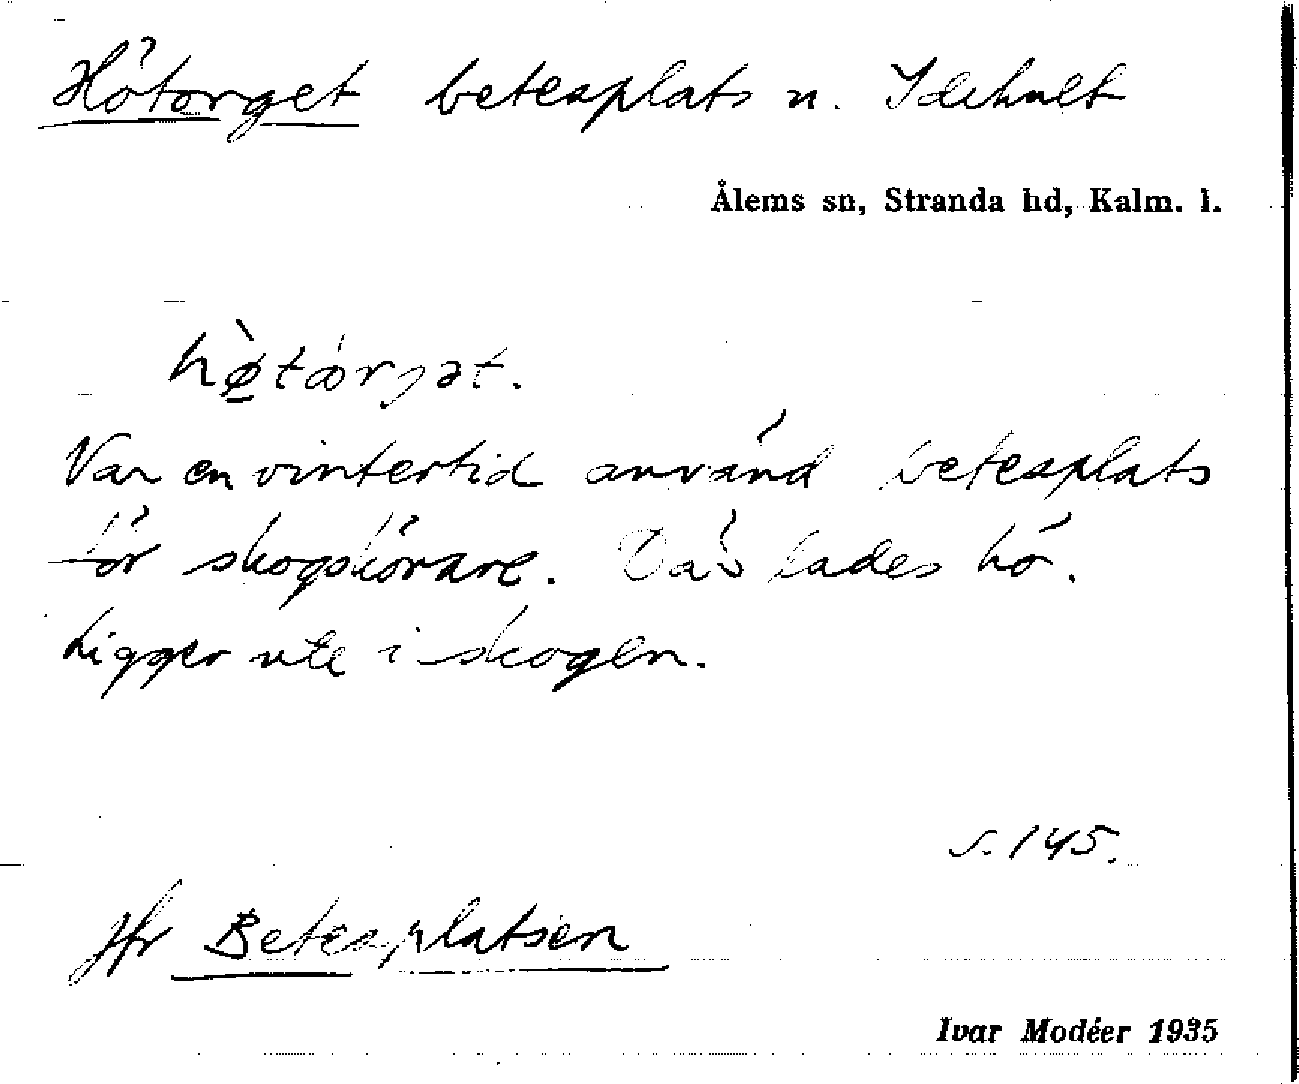 Hötorget betesplats u. Idehult
Ålems sn, Stranda hd, Kalm. l.
Var en vintertid använd betesplats
för skogskörare. Då lades hö.
Ligger ute i skogen.
s. 145.
Jfr Betesplatsen
Ivar Modéer 1935